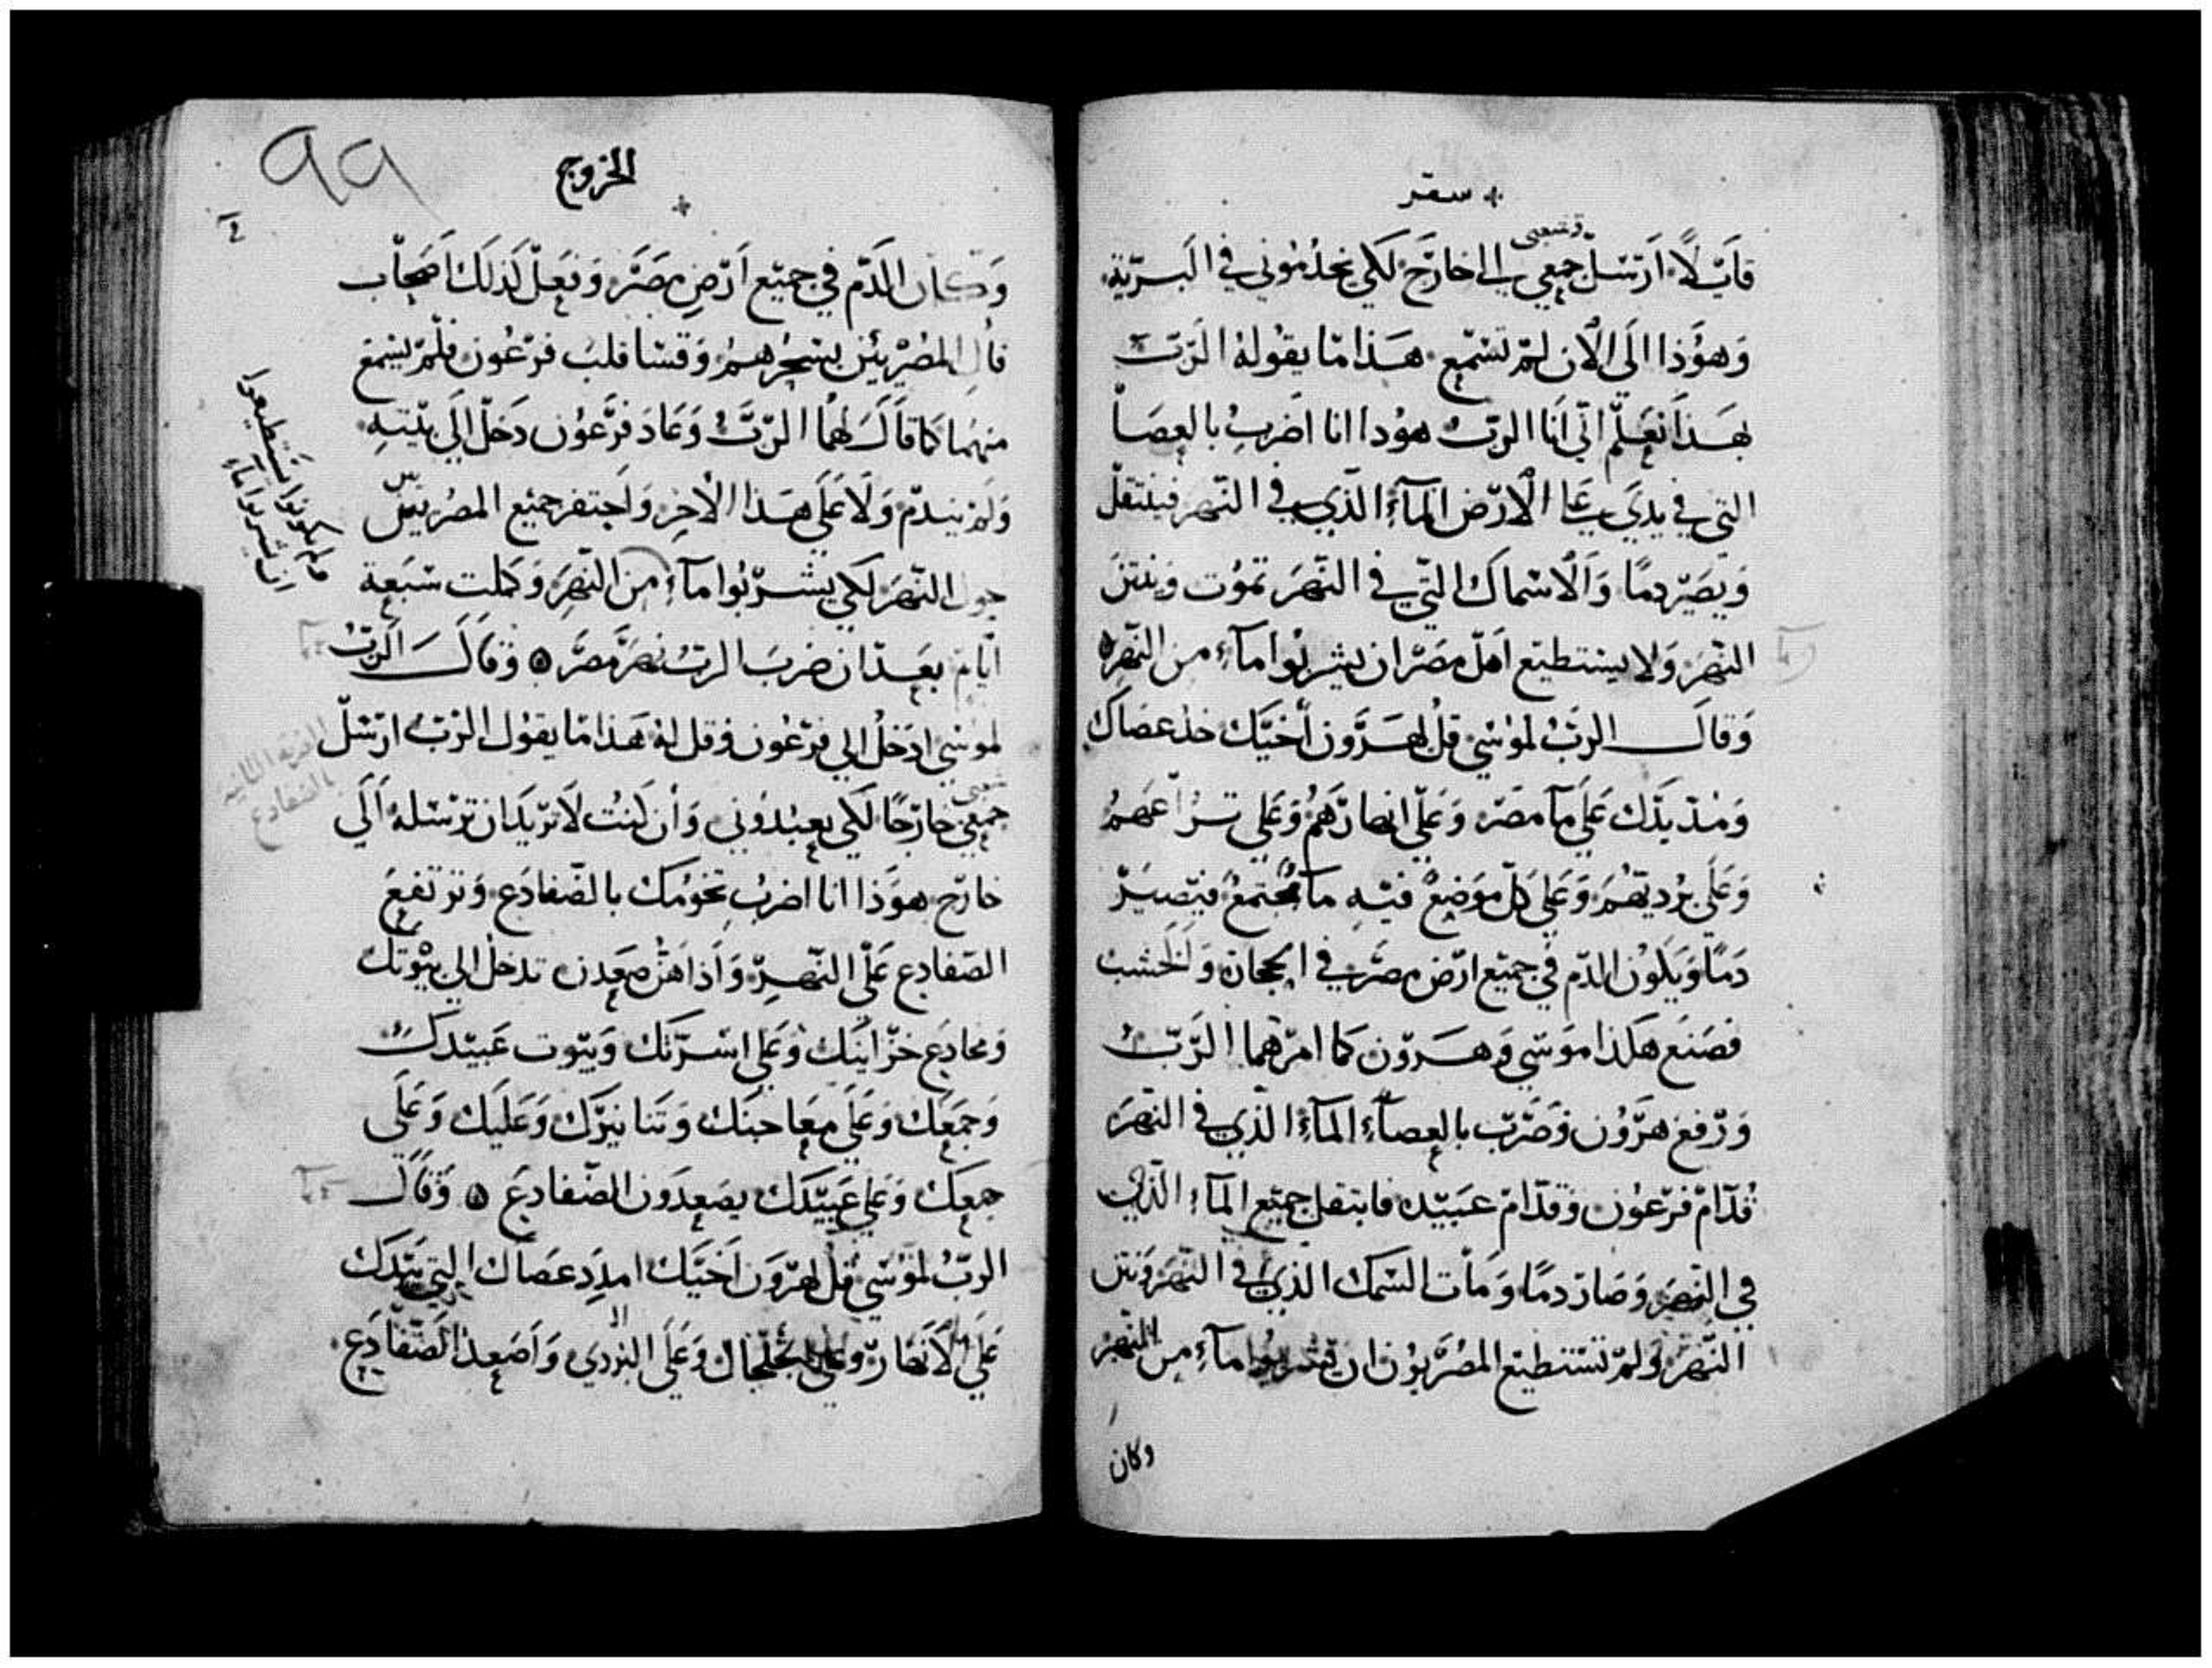 سفر
قايلاً ارسل جمعي وشعبي الى خارج لكي يخدموني في البرية
وهوذا الي الان لم تسمع هذا ما يقوله الرب
بهذا تعلم اني انا الرب هوذا انا اضرب بالعصا
التي في يدي على الارض المآء الذي في النهر فينتقل
ويصير دمًا والاسماك التي في النهر تموت وينتن
النهر ولا يستطيع اهل مصر ان يشربوا مآء من النهر
وقال الرب لموسي قل لهرون اخيك خذ عصاك
ومد يدك علي مآ مصر وعلي انهارهم وعلي ترعهم
وعلي برديهم وعلي كل موضع فيه مآ مجتمع فيصير
دمًا ويكون الدم في جميع ارض مصر في الحجارة والخشب
فصنع هكذا موسي وهرون كما امرهما الرب
ورفع هرون وضرب بالعصاء المآء الذي في النهر
قدام فرعون وقدام عبيده فانتقل جميع المآء الذي
في النهر وصار دمًا ومات السمك الذي في النهر ونتن
النهر ولم تستطيع المصريون ان يشربوا مآء من النهر
وكان
99
الخروج
وكان الدم في جميع ارض مصر وفعل كذلك اصحاب
المصريين بسحرهم وقسا قلب فرعون فلم يسمع
منهما كما قال لهما الرب وعاد فرعون دخل الي بيته
ولم يندم ولا علي هذا الاخر واحتفر جميع المصريين
حول النهر لكي يشربوا مآء من النهر وكملت سبعة
ولم يكونوا يستطيعوا
ان يشربوا مآء
ايام بعد ان ضرب الرب نهر مصر ۞ وقال الرب
لموسي ادخل الي فرعون وقل له هذا ما يقول الرب ارسل
الضربه الثانيه
بالضفادع
جمعي شعبي خارجًا لكي يعبدوني وان كنت لا تريد ان ترسله الي
خارج هوذا انا اضرب تخومك بالضفادع وترتفع
الضفادع علي النهر واذا هن صعدن تدخل الي بيوتك
ومخادع خزاينك وعلي اسرتك وبيوت عبيدك
وجمعك وعلي معاجنك وتنانيرك وعليك وعلي
جمعك وعلي عبيدك يصعدون الضفادع ۞ وقال
الرب لموسي قل لهرون اخيك امدد عصاك التي بيدك
علي الانهار وعلي الخلجان وعلي البردي واصعد الضفادع